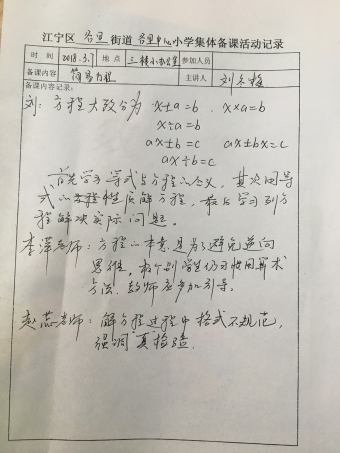 江宁区 谷里 街道 谷里中心小学集体备课活动记录
时间 2018.3.7 地点 三楼小办公室 参加人员
备课内容 简易方程 主讲人 刘冬梅
备课内容记录:
刘: 方程大致分为 x±a=b. x×a=b
x÷a=b
ax±b=c ax±bx=c
ax÷b=c
首先学习等式与方程的含义, 其次用等
式的性质解方程, 最后学习列方
程解决实际问题。
李萍老师: 方程的本意是为了避免逆向
思维, 有个别学生仍习惯用算术
方法, 教师应多加引导。
赵蕊老师: 解方程过程中格式不规范,
强调"真"检验.